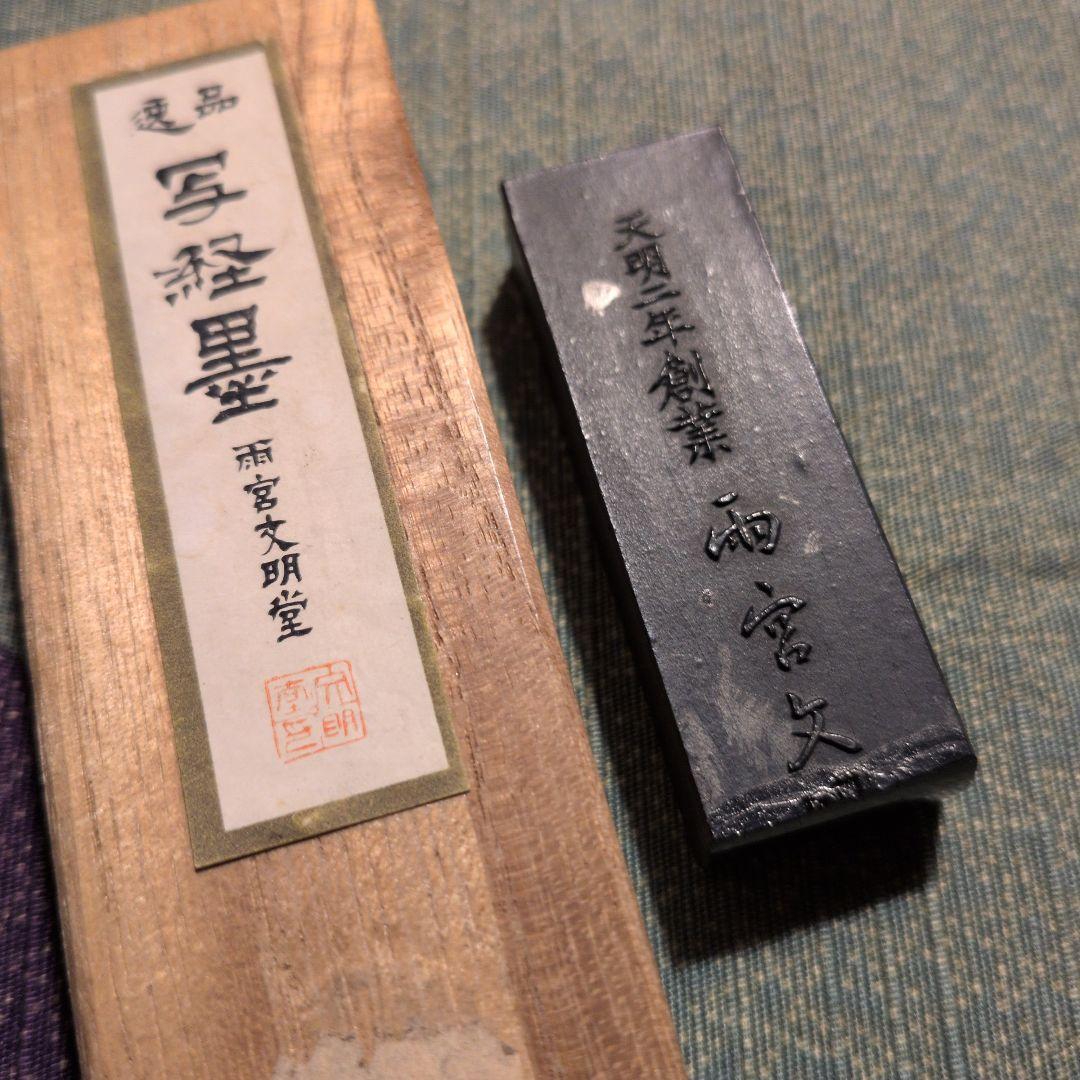 逸品
写経墨
雨宮文明堂
文明堂印
天明二年創業 雨宮文